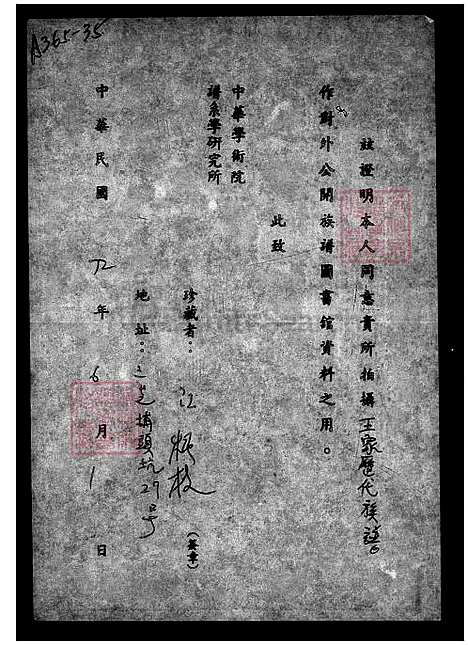 A365-35
玆證明本人同意貴所拍攝王家歷代族譜
作對外公開族譜圖書館資料之用。
此致
中華學術院
譜系學研究所
珍藏者：江 枝
(簽章)
地址：三芝埔頭坑29号
中華民國72年6月1日